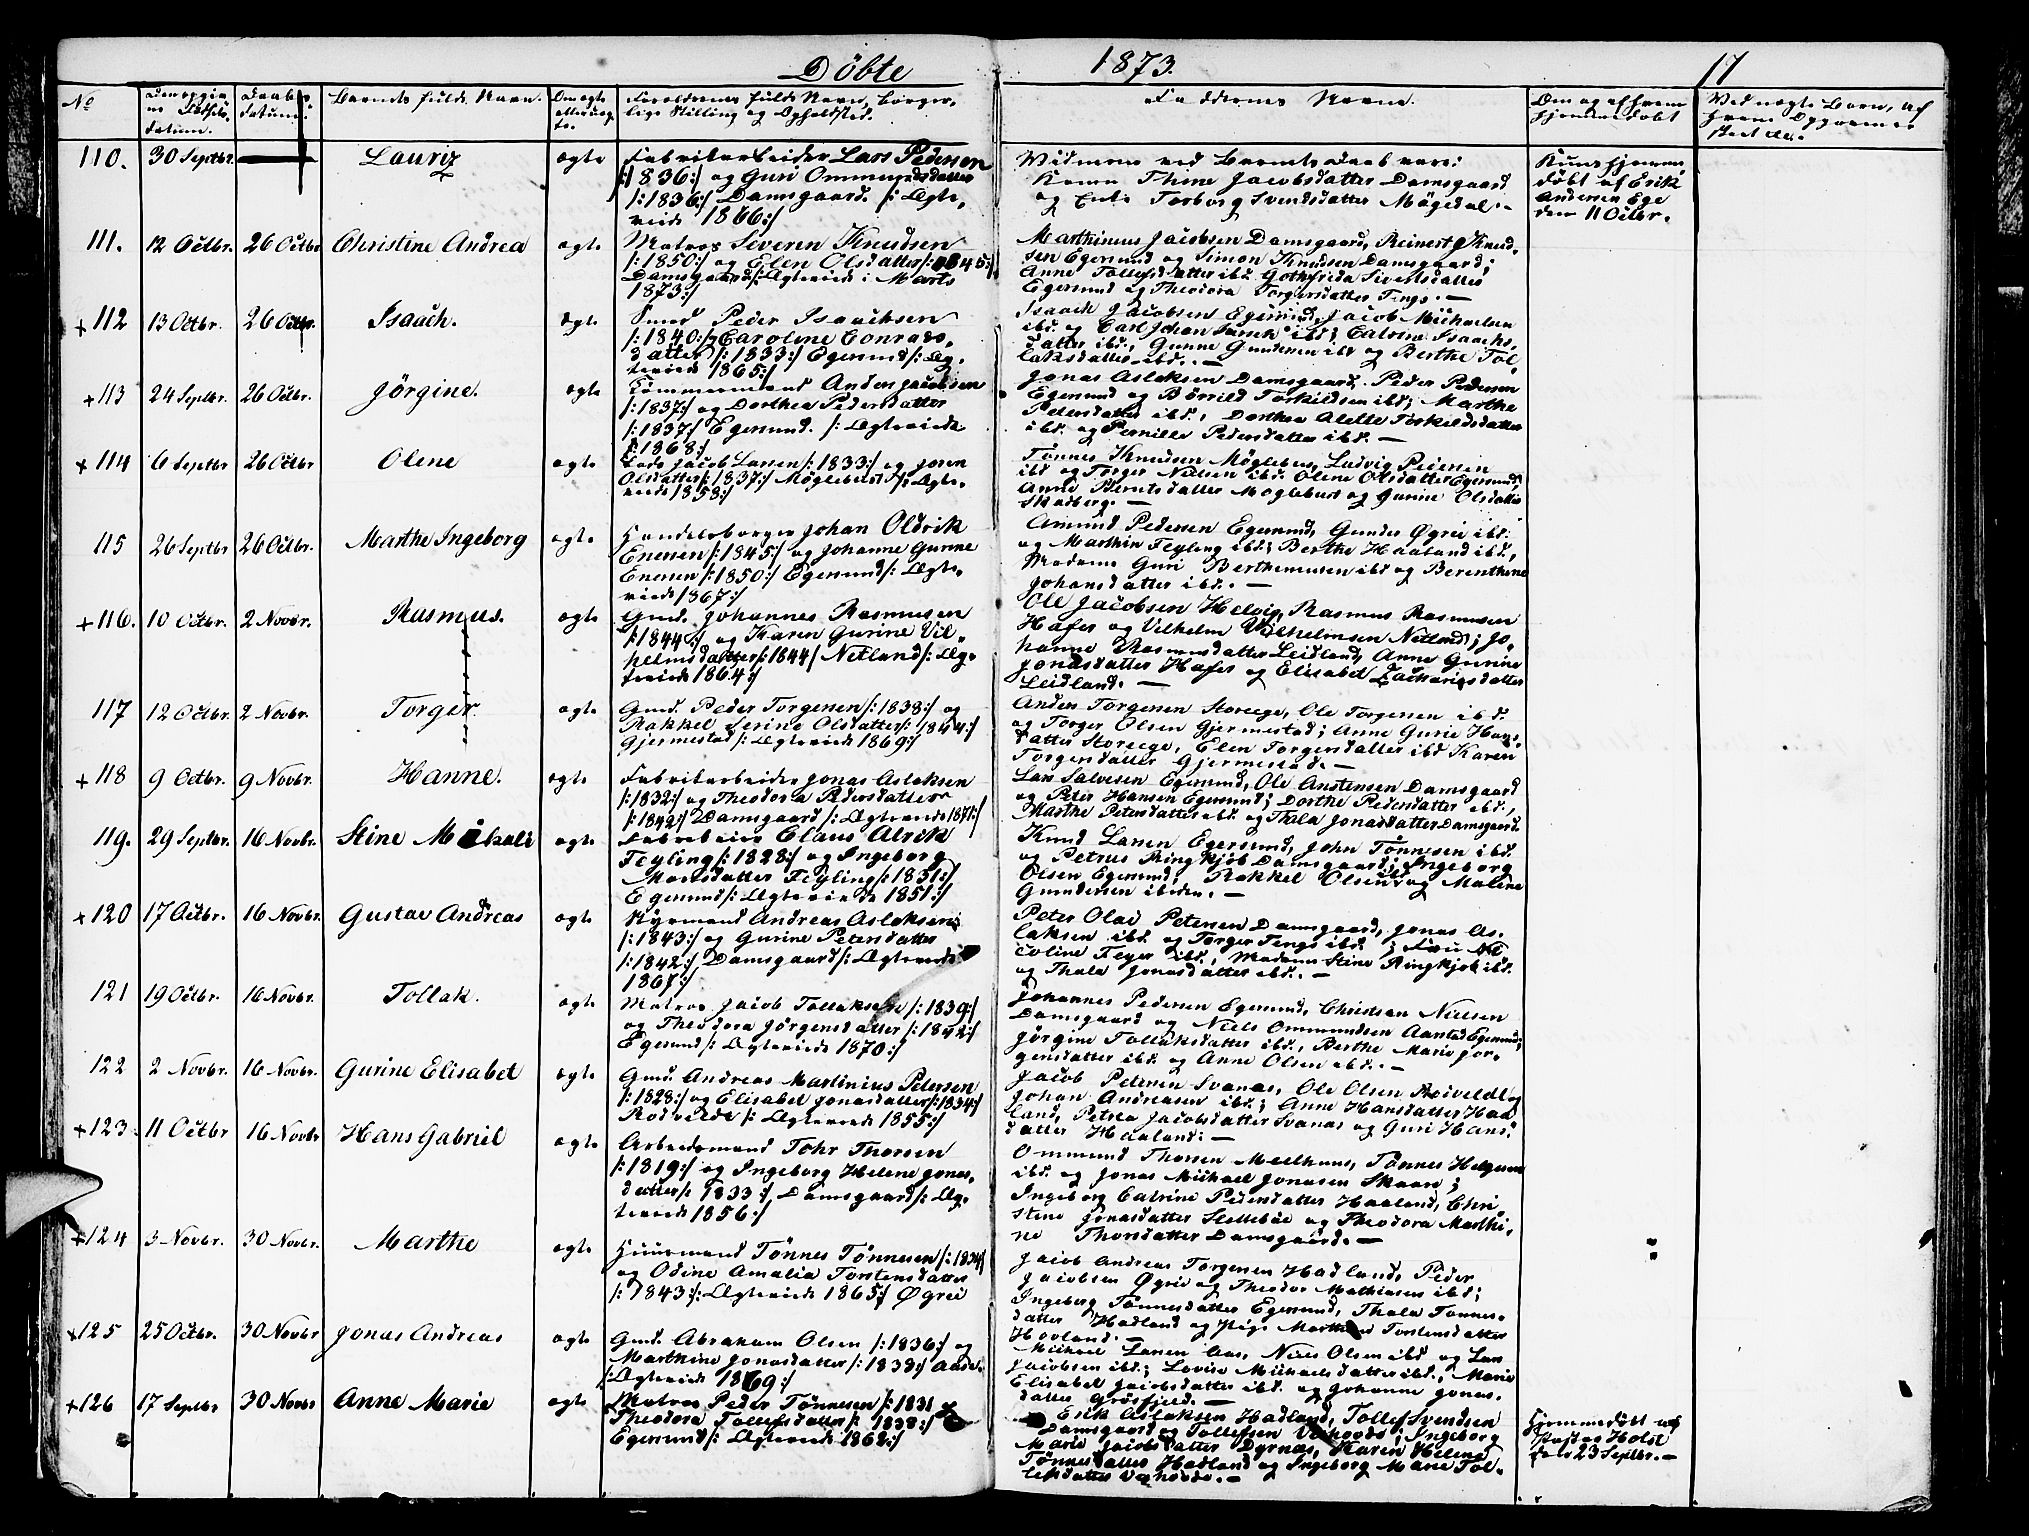 Döbte 1873. 17
No
datum.
datum.
Barnets fulde Navn.
Forældrenes fulde Navn, borger-
lige Stilling og Opholdsted.
Faddernes Navne.
110. 30 Septbr. Lauriz ægte
Fabrikarbeider Lars Pedersen
/:1836:/ og Guri Ommundsdatter
/:1836:/ Damsgaard. /: Ægte-
viede 1866:/
Vidnerne ved Barnets Daab vare:
Konen Thine Jacobsdatter Damsgaard
og Enke Torborg Svendsdatter Mögedal.-
Kuns hjemme-
döbt af Erik
Andersen Ege
den 11 Octbr.
111. 12 Octbr. 26 Octbr Christine Andrea ægte
Matros Severen Knudsen
/:1850:/ og Elen Olsdatter /:1845:/
Damsgaard /:Ægteviede i Marts
1873:/
Marthinius Jacobsen Damsgaard, Reinert Knud-
sen Egersund og Simon Knudsen Damsgaard;
Anne Tollefsdatter ibd. Gothfrida Sivertsdatter
Egersund og Theodora Torgersdatter Tengs.-
+ 112 13 Octbr. 26 Octbr. Isaach. ægte
Smed Peder Isaachsen
/:1840:/ og Caroline Conrads-
datter /:1833:/ Egersund /: Æg-
teviede 1865:/
Isaach Jacobsen Egersund, Jacob Michaelsen
ibd. og Carl Johan ibd; Catrine Isaachs-
datter ibd., Gunne Gundersen ibd og Berthe Tol-
laksdatter ibd.-
+ 113 24 Septbr. 26 Octbr. Jörgine. ægte
Tömmermand Anders Jacobsen
/:1837:/ og Dorthea Pedersdatter
/:1837/ Egersund. /: Ægteviede
1868:/
Jonas Aslaksen Damsgaard, Peder Pedersen
Egersund og Börrild Torkildsen ibd; Marthe
Petersdatter ibd., Dorthea Alette Torkildsdatter
ibd. og Pernille Pedersdatter ibd.-
+ 114 6 Septbr 26 Octbr Olene ægte
Lods Jacob Larsen /:1833:/ og Joren
Olsdatter /:1837:/ Möglebust /: Ægte-
viede 1858:/
Tönnes Knudsen Möglebust, Ludvig Petersen
ibd og Torger Nielsen ibd. Olene Olsdatter Egersund,
Anne Berntsdatter Möglebust og Gurine Olsdatter
Skadberg.-
115 26 Septbr 26 Octbr. Marthe Ingeborg ægte
Handelsborger Johan Oldrik
Enersen /:1845:/ og Johanne Gunne
Enersen /:1850:/ Egersund /: Ægte-
viede 1867:/
Amund Pedersen Egersund, Gunder Øgrei ibd.
og Marthin Feyling ibd; Berthe Haaland ibd.,
Madame Guri Berthemusen ibd og Berenthine
Johansdatter ibd.-
+ 116. 10 Octbr. 2 Novbr. Rasmus. ægte
Gmd. Johannes Rasmusen
/:1844:/ og Karen Gurine Vil-
helmsdatter /:1844/ Netland /: Æg-
teviede 1864:/
Ole Jacobsen Helvig, Rasmus Rasmusen
Hafer og Vilhelm Vilhelmsen Netland; Jo-
hanne Rasmusdatter Leidland, Anne Gurine
Jonasdatter Hafer og Elisabet Zachariasdatter
Leidland.-
117 12 Octbr. 2 Novbr. Torger ægte
Gmd. Peder Torgersen /:1838:/ og
Rakkel Serine Olsdatter /:1844:/
Gjermestad /: Ægteviede 1869:/
Anders Torgersen Storeege, Ole Torgersen ibd.
og Torger Olsen Gjermestad; Anne Gurie Hans-
datter Storeege, Elen Torgersdatter ibd Karen
Torgersdatter Gjermestad.-
+ 118 9 Octbr. 9 Novbr. Hanne. ægte
Fabrikarbeider Jonas Aslaksen
/:1832:/ og Theodora Pedersdatter
/:1842:/ Damsgaard /: Ægteviede 1871:/
Lars Salvesen Egersund, Ole Anstensen Damsgaard
og Peter Hansen Egersund; Dorthe Pedersdatter ibd.,
Marthe Petersdatter ibd. og Thala Jonasdatter Damsgaard.
119. 29 Septbr. 16 Novbr. Stine Mikale ægte
Claus Alrik
Feyling /:1828:/ og Ingeborg
Monsdatter Feyling /:1831:/
Egersund /: Ægteviede 1851:/
Knud Larsen Egersund, John Tönnesen ibd.
og Petrus Ringkjöb Damsgaard; Ingeborg
Olsen Egersund, Rakkel Olsen og Malene
Gundersen ibiden.-
+ 120 17 Octbr. 16 Novbr. Gustav Andreas ægte
Styrmand Andreas Aslaksen
/:1843:/ og Gurine Petersdatter
/:1842:/ Damsgaard /: Ægteviede
1867:/
Peter Olai Petersen Damsgaard, Jonas As-
laksen ibd. og Torger Tengs ibd. ; Fru Ni-
coline Feyer ibd., Madame Stine Ringkjöb ibd.
og Thala Jonasdatter ibd.-
121 19 Octbr. 16 Novbr. Tollak. ægte
Matros Jacob Tollaksen /:1839:/
og Theodora Jörgensdatter /:1842:/
Egersund /: Ægteviede 1870:/
Johannes Pedersen Egersund, Christian Nielsen
Damsgaard og Niels Ommundsen Aarstad Egersund;
Jörgine Tollaksdatter ibd., Berthe Marie Jör-
gensdatter ibd. og Anne Olsen ibd.-
122 2 Novbr. 16 Novbr. Gurine Elisabet ægte
Gmd. Andreas Martinius Petersen
/:1828:/ og Elisabet Jonasdatter /:1834:/
Rodvelde /: Ægteviede 1855:/
Jacob Petersen Svanas, Ole Olsen og
Johan Andreasen ibd.; Anne Hansdatter Haa-
land, Petrea Jacobsdatter Svanas og Guri Hans-
datter Haaland.-
+ 123. 11 Octbr 16 Novbr Hans Gabriel ægte
Arbeidsmand Tohr Thorsen
/:1819:/ og Ingeborg Helene Jonas-
datter /:1833:/ Damsgaard /: Æg-
teviede 1856:/
Ommund Thorsen Meelhuus, Tönnes Helgesen
ibd. og Jonas Michael Jonasen Skaare;
Ingeborg Catrine Pedersdatter Haaland, Chri-
stine Jonasdatter Slettebøe og Theodora Marthi-
ne Thorsdatter Damsgaard.-
+ 124 3 Novbr. 30 Novbr. Marthe ægte
Huusmand Tönnes Tönnesen /:1834/
og Odine Amalia Torstensdatter
/:1843:/: Ægteviede 1865:/ Øgrei
Jacob Andreas Torgersen Hadland, Peder
Jacobsen Øgrei og Theodor Mathiasen ibd;
Ingeborg Tönnesdatter Egersund, Thala Tönnes-
datter Hadland og Pige Marthe Torstensdatter
Hovland.-
+ 125 25 Octbr. 30 Novbr Jonas Andreas ægte
Gmd. Abraham Olsen /:1836:/ og
Marthine Jonasdatter /:1838:/ Aase.
/:Ægteviede 1869:/
Michael Larsen Aas, Niels Olsen ibd og Lars
Jacobsen ibd; Lovise Michaelsdatter ibd., Marie
Elisabet Jacobsdatter ibd. og Johanne Jonas-
datter Grösfjeld.-
+ 126 17 Septbr 30 Novbr Anne Marie ægte
Matros Peder Tönnesen /:1831
Theodora Tollefsdatter /:1838:/
Egersund /: Ægteviede 1862:/
Erik Aslaksen Hadland, Tollef Svendsen
Damsgaard og Tollefsen; Ingeborg
Marie Jacobsdatter Dyrnæs, Karen Helene
Tönnesdatter Hadland og Ingeborg Marie Tol-
lefsdatter.-
Hjemmedöbt af
Pastor Holst
den 23 Septbr.-